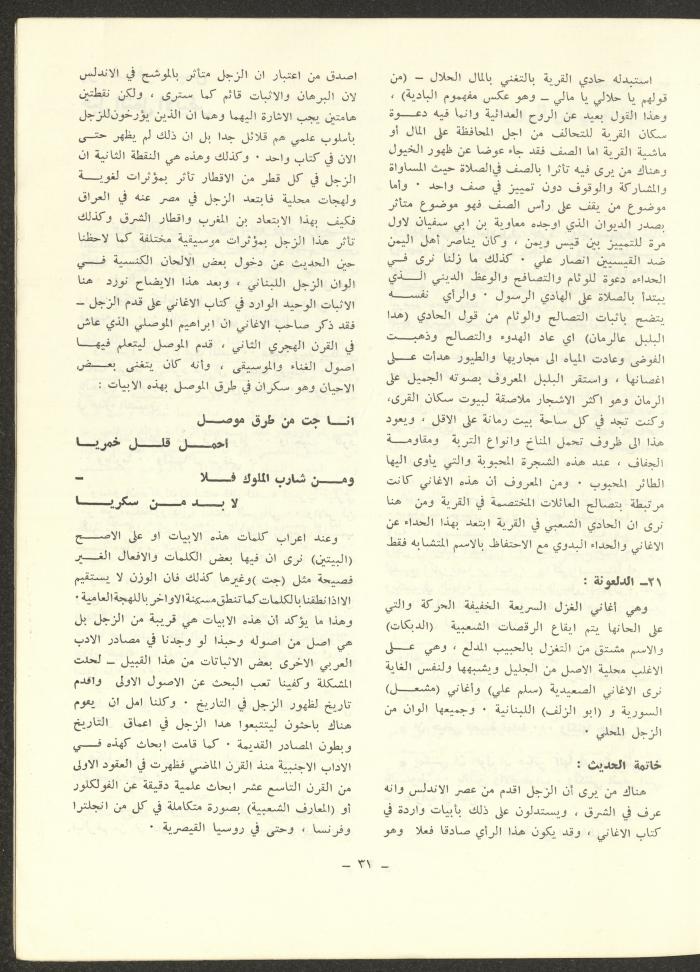 استبدله حادي القرية بالتغني بالمال الحلال ــ (من
قولهم يا حلالي يا مالي ــ وهو عكس مفهوم البادية) ،
وهذا القول بعيد عن الروح العدائية وانما فيه دعـــوة
سكان القرية للتحالف من اجل المحافظة على المال أو
ماشية القرية اما الصف فقد جاء عوضا عن ظهور الخيول
وهناك من يرى فيه تأثرا بالصف في الصلاة حيث المساواة
والمشاركة والوقوف دون تمييز في صف واحد ٠ وأما
موضوع من يقف على رأس الصف فهو موضوع متأثر
بصدر الديوان الذي اوجده معاوية بن ابي سفيان لاول
مرة للتمييز بين قيس ويمن ، وكان يناصر أهل اليمن
ضد القيسيين انصار علي ٠ كذلك ما زلنا نرى فـــي
الحداء دعوة للوئام والتصافح والوعظ الديني الـــذي
يبتدأ بالصلاة على الهادي الرسول ٠ والرأي نفســـه
يتضح باثبات التصالح والوئام من قول الحادي (هدا
البلبل عالرمان) اي عاد الهدوء والتصالح وذهبـــت
الفوضى وعادت المياه الى مجاريها والطيور هدأت علـــى
اغصانها ، واستقر البلبل المعروف بصوته الجميل على
الرمان وهو اكثر الاشجار ملاصقة لبيوت سكان القرى،
وكنت تجد في كل ساحة بيت رمانة على الاقل ، ويعود
هذا الى ظروف تحمل المناخ وانواع التربة ومقاومـــة
الجفاف ، عند هذه الشجرة المحبوبة والتي يأوى اليها
الطائر المحبوب ٠ ومن المعروف أن هذه الاغاني كانت
مرتبطة بتصالح العائلات المختصمة في القرية ومن هنا
نرى ان الحادي الشعبي في القرية ابتعد بهذا الحداء عن
الاغاني والحداء البدوي مع الاحتفاظ بالاسم المتشابه فقط
٢١ــ الدلعونة :
وهي أغاني الغزل السريعة الخفيفة الحركة والتي
على الحانها يتم ايقاع الرقصات الشعبية (الدبكات)
والاسم مشتق من التغزل بالحبيب المدلع ، وهي علـــى
الاغلب محلية الاصل من الجليل ويشبهها ولنفس الغاية
نرى الاغاني الصعيدية (سلم علي) وأغاني (مشعـــل)
السورية و (ابو الزلف) اللبنانية ٠ وجميعها الوان من
الزجل المحلي ٠
خاتمة الحديث :
هناك من يرى أن الزجل اقدم من عصر الاندلس وانه
عرف في الشرق ، ويستدلون على ذلك بأبيات واردة في
كتاب الاغاني ، وقد يكون هذا الرأي صادقا فعلا وهو
اصدق من اعتبار ان الزجل متأثر بالموشح في الاندلس
لان البرهان والاثبات قائم كما سترى ، ولكن نقطتين
هامتين يجب الاشارة اليهما وهما ان الذين يؤرخون للزجل
بأسلوب علمي هم قلائل جدا بل ان ذلك لم يظهر حتـــى
الان في كتاب واحد ٠ وكذلك وهذه هي النقطة الثانية ان
الزجل في كل قطر من الاقطار تأثر بمؤثرات لغويـــة
ولهجات محلية فابتعد الزجل في مصر عنه في العراق
فكيف بهذا الابتعاد بن المغرب واقطار الشرق وكذلك
تأثر هذا الزجل بمؤثرات موسيقية مختلفة كما لاحظنا
حين الحديث عن دخول بعض الالحان الكنسية فـــي
الوان الزجل اللبناني ، وبعد هذا الايضاح نورد هنا
الاثبات الوحيد الوارد في كتاب الاغاني على قدم الزجل ــ
فقد ذكر صاحب الاغاني ان ابراهيم الموصلي الذي عاش
في القرن الهجري الثاني ، قدم الموصل ليتعلم فيهـــا
اصول الغناء والموسيقى ، وأنه كان يتغنى بعـــض
الاحيان وهو سكران في طرق الموصل بهذه الابيات :
انـــا جت من طرق موصـــل
أحمـــل قلـــل خمريـــا
ومـــن شارب الملوك فـــلا ــ
لا بـــد مـــن سكريـــا
وعند اعراب كلمات هذه الابيات او على الاصـــح
(البيتين) نرى ان فيها بعض الكلمات والافعال الغـــير
فصيحة مثل (جت )وغيرها كذلك فان الوزن لا يستقيم
الا اذا نطقنا بالكلمات كما تنطق مسكنة الاواخر باللهجة العامية ٠
وهذا ما يؤكد أن هذه الابيات هي قريبة من الزجل بل
هي اصل من اصوله وحبذا لو وجدنا في مصادر الادب
العربي الاخرى بعض الاثباتات من هذا القبيل ــ لحلت
المشكلة وكفينا تعب البحث عن الاصول الاولى واقدم
تاريخ لظهور الزجل في التاريخ ٠ وكلنا امل ان يقوم
هناك باحثون ليتتبعوا هذا الزجل في اعماق التاريخ
وبطون المصادر القديمة ٠ كما قامت ابحاث كهذه فـــي
الاداب الاجنبية منذ القرن الماضي فظهرت في العقود الاولى
من القرن التاسع عشر ابحاث علمية دقيقة عن الفولكلور
أو (المعارف الشعبية) بصورة متكاملة في كل من انجلترا
وفرنسا ، وحتى في روسيا القيصرية ٠
ــ ٣١ ــ